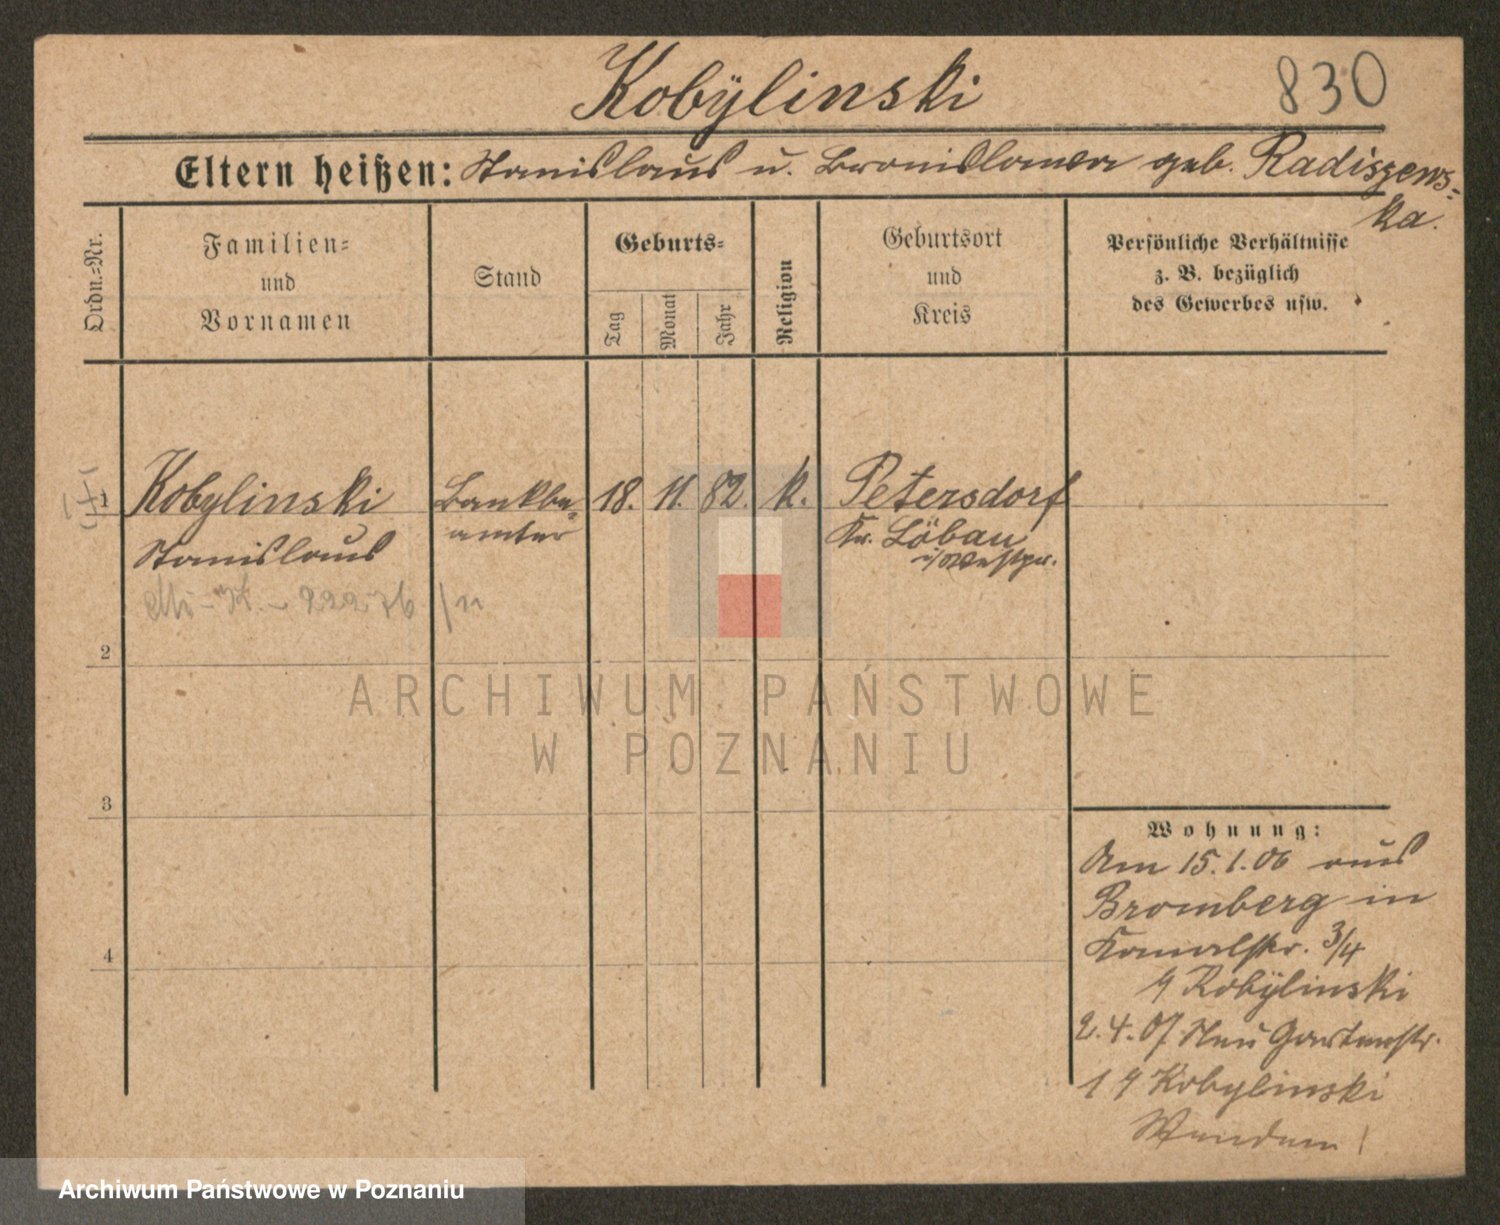 Kobÿlinski
830
Eltern heißen: Stanislaus u. Bronislawa geb. Radiszews-
ka.
Ordn.-Nr.
Familien-
und
Vornamen
Stand
Geburts-
Tag
Monat
Jahr
Religion
Geburtsort
und
Kreis
Persönliche Verhältnisse
z. B. bezüglich
des Gewerbes usw.
1 Kobylinski Bankbe- 18. 11. 82. k. Petersdorf
Stanislaus amter Kr. Löbau
i/Westpr.
2
3
4
Wohnung:
Am 15.1.06 aus
Bromberg in
Kanalstr. 3/4
Kobÿlinski
2.4.07 Neu Gartenstr.
Kobylinski
Wenden!
ARCHIWUM PAŃSTWOWE
W POZNANIU
Archiwum Państwowe w Poznaniu